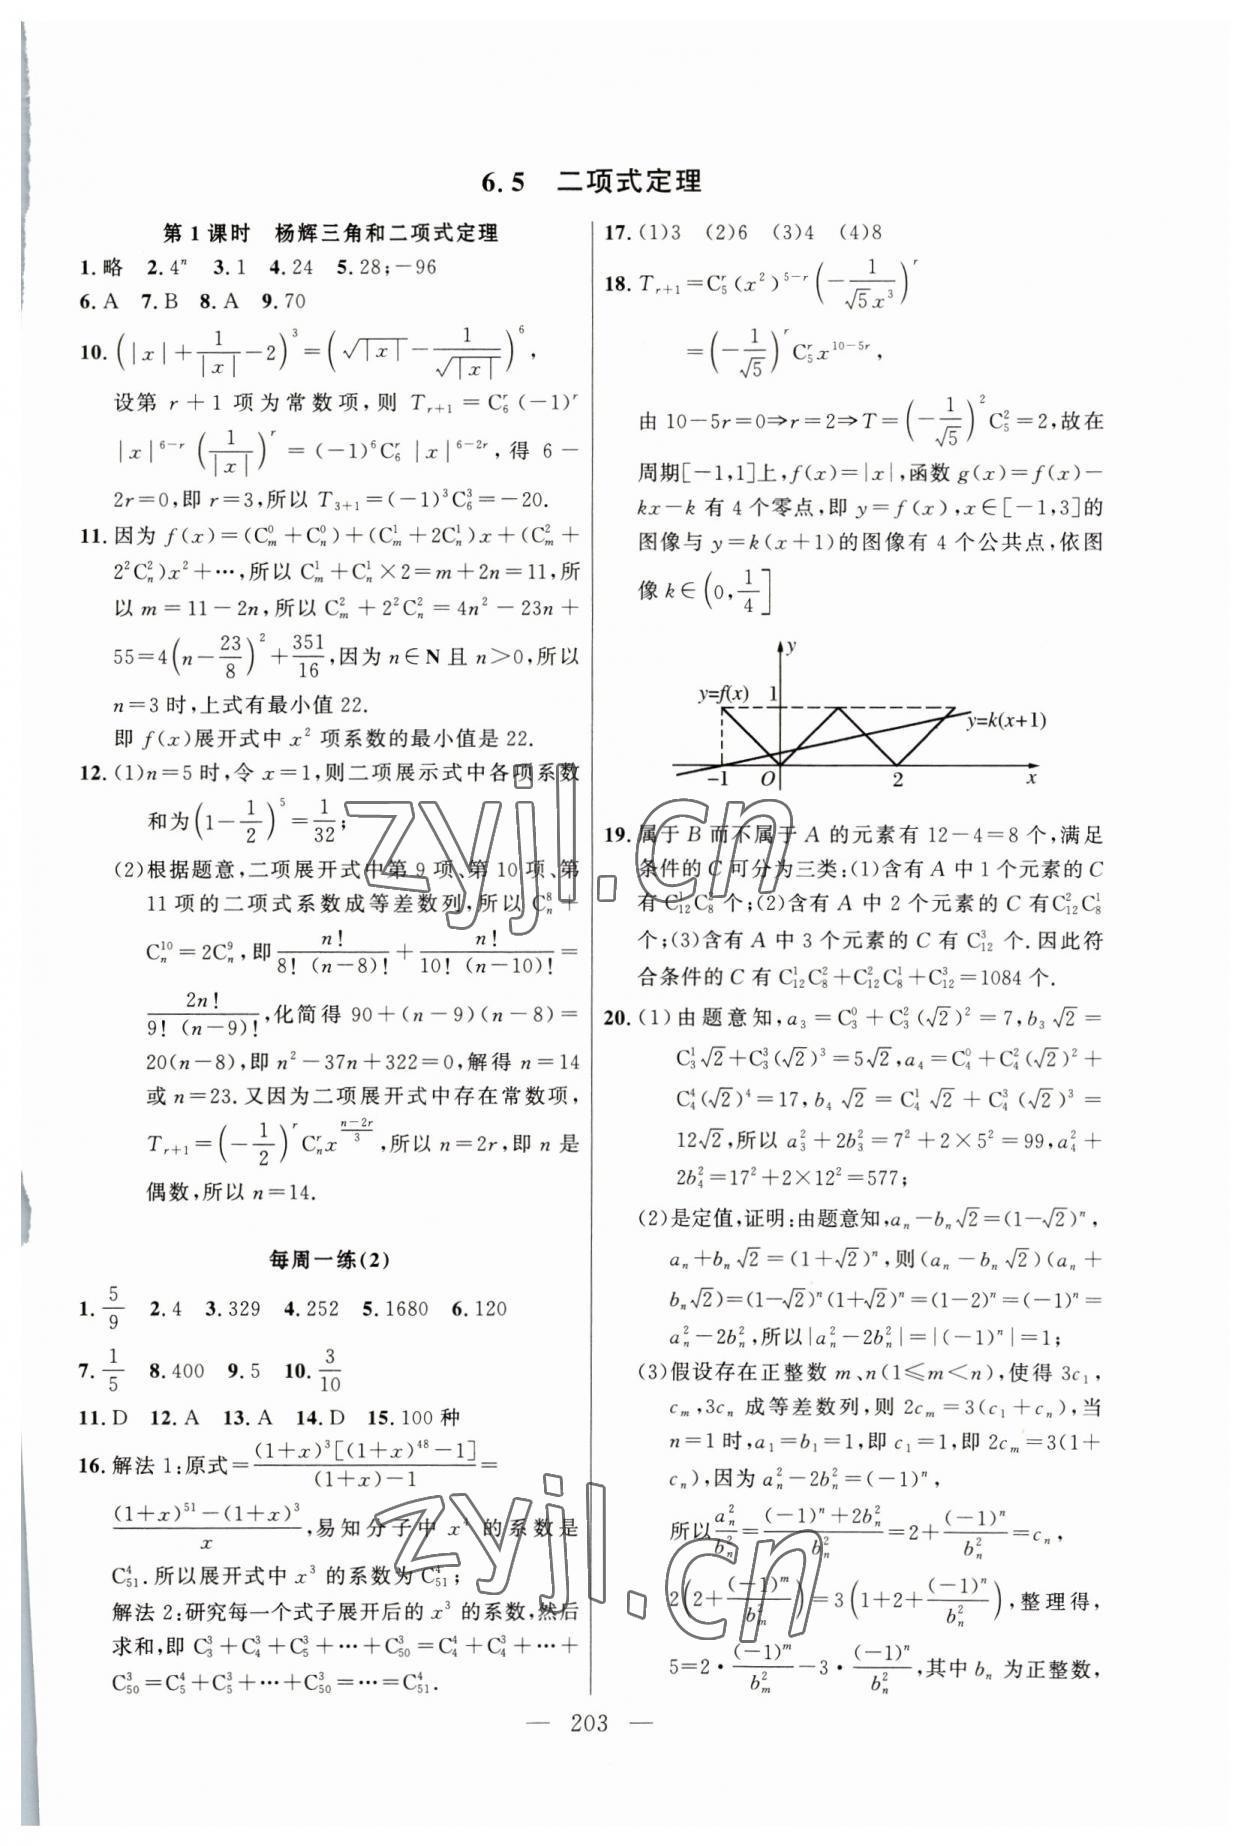 6.5 二项式定理
第1课时 杨辉三角和二项式定理
1.略 2.4ⁿ 3.1 4.24 5.28;-96
6.A 7.B 8.A 9.70
10.(|x|+1/|x|-2)³=(√|x|-1/√|x|)⁶,
设第 r+1 项为常数项,则 T_{r+1}=C₆^r(-1)^r
|x|^{6-r}(1/|x|)^r=(-1)⁶C₆^r|x|^{6-2r},得 6-
2r=0,即 r=3,所以 T_{3+1}=(-1)³C₆³=-20.
11.因为 f(x)=(C_m^0+C_n^0)+(C_m^1+2C_n^1)x+(C_m^2+
2²C_n^2)x²+…,所以 C_m^1+C_n^1×2=m+2n=11,所
以 m=11-2n,所以 C_m^2+2²C_n^2=4n²-23n+
55=4(n-23/8)²+351/16,因为 n∈N 且 n>0,所以
n=3 时,上式有最小值 22.
即 f(x)展开式中 x² 项系数的最小值是 22.
12.(1)n=5 时,令 x=1,则二项展示式中各项系数
和为(1-1/2)⁵=1/32;
(2)根据题意,二项展开式中第 9 项、第 10 项、第
11 项的二项式系数成等差数列,所以 C_n^8+
C_n^{10}=2C_n^9,即 n!/(8!(n-8)!)+n!/(10!(n-10)!)=
2n!/(9!(n-9)!),化简得 90+(n-9)(n-8)=
20(n-8),即 n²-37n+322=0,解得 n=14
或 n=23.又因为二项展开式中存在常数项,
T_{r+1}=(-1/2)^r C_n^r x^{(n-2r)/3},所以 n=2r,即 n 是
偶数,所以 n=14.
每周一练(2)
1.5/9 2.4 3.329 4.252 5.1680 6.120
7.1/5 8.400 9.5 10.3/10
11.D 12.A 13.A 14.D 15.100 种
16.解法 1:原式=(1+x)³[(1+x)⁴⁸-1]/((1+x)-1)=
((1+x)⁵¹-(1+x)³)/x,易知分子中 x⁴ 的系数是
C_{51}^4.所以展开式中 x³ 的系数为 C_{51}^4;
解法 2:研究每一个式子展开后的 x³ 的系数,然后
求和,即 C_3^3+C_4^3+C_5^3+…+C_{50}^3=C_4^4+C_4^3+…+
C_{50}^3=C_5^4+C_5^3+…+C_{50}^3=…=C_{51}^4.
17.(1)3 (2)6 (3)4 (4)8
18.T_{r+1}=C_5^r(x²)^{5-r}(-1/(√5x³))^r
=(-1/√5)^r C_5^r x^{10-5r},
由 10-5r=0⇒r=2⇒T=(-1/√5)²C_5^2=2,故在
周期[-1,1]上,f(x)=|x|,函数 g(x)=f(x)-
kx-k 有 4 个零点,即 y=f(x),x∈[-1,3]的
图像与 y=k(x+1)的图像有 4 个公共点,依图
像 k∈(0,1/4]
y
y=f(x) 1
y=k(x+1)
-1 O 2 x
19.属于 B 而不属于 A 的元素有 12-4=8 个,满足
条件的 C 可分为三类:(1)含有 A 中 1 个元素的 C
有 C_{12}^1C_8^2 个;(2)含有 A 中 2 个元素的 C 有C_{12}^2C_8^1
个;(3)含有 A 中 3 个元素的 C 有 C_{12}^3 个.因此符
合条件的 C 有 C_{12}^1C_8^2+C_{12}^2C_8^1+C_{12}^3=1084 个.
20.(1)由题意知,a₃=C_3^0+C_3^2(√2)²=7,b₃√2=
C_3^1√2+C_3^3(√2)³=5√2,a₄=C_4^0+C_4^2(√2)²+
C_4^4(√2)⁴=17,b₄√2=C_4^1√2+C_4^3(√2)³=
12√2,所以 a₃²+2b₃²=7²+2×5²=99,a₄²+
2b₄²=17²+2×12²=577;
(2)是定值,证明:由题意知,a_n-b_n√2=(1-√2)ⁿ,
a_n+b_n√2=(1+√2)ⁿ,则(a_n-b_n√2)(a_n+
b_n√2)=(1-√2)ⁿ(1+√2)ⁿ=(1-2)ⁿ=(-1)ⁿ=
a_n²-2b_n²,所以|a_n²-2b_n²|=|(-1)ⁿ|=1;
(3)假设存在正整数 m、n(1≤m<n),使得 3c₁,
c_m,3c_n 成等差数列,则 2c_m=3(c₁+c_n),当
n=1 时,a₁=b₁=1,即 c₁=1,即 2c_m=3(1+
c_n),因为 a_n²-2b_n²=(-1)ⁿ,
所以a_n²/b_n²=((-1)ⁿ+2b_n²)/b_n²=2+(-1)ⁿ/b_n²=c_n,
2(2+(-1)^m/b_m²)=3(1+2+(-1)ⁿ/b_n²),整理得,
5=2·(-1)^m/b_m²-3·(-1)ⁿ/b_n²,其中 b_n 为正整数,
— 203 —
zyjl.cn
zyjl.cn